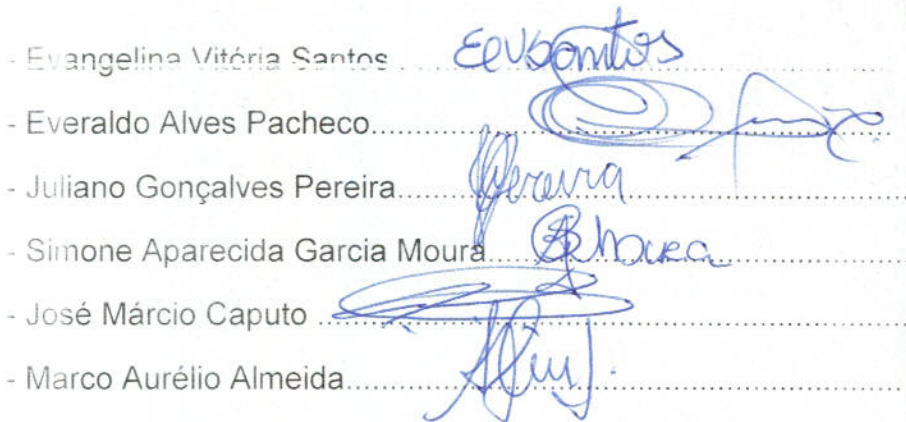 - Evangelina Vitória Santos ............ EevSantos
- Everaldo Alves Pacheco............
- Juliano Gonçalves Pereira............ Pereira
- Simone Aparecida Garcia Moura............ Moura
- José Márcio Caputo ............
- Marco Aurélio Almeida............